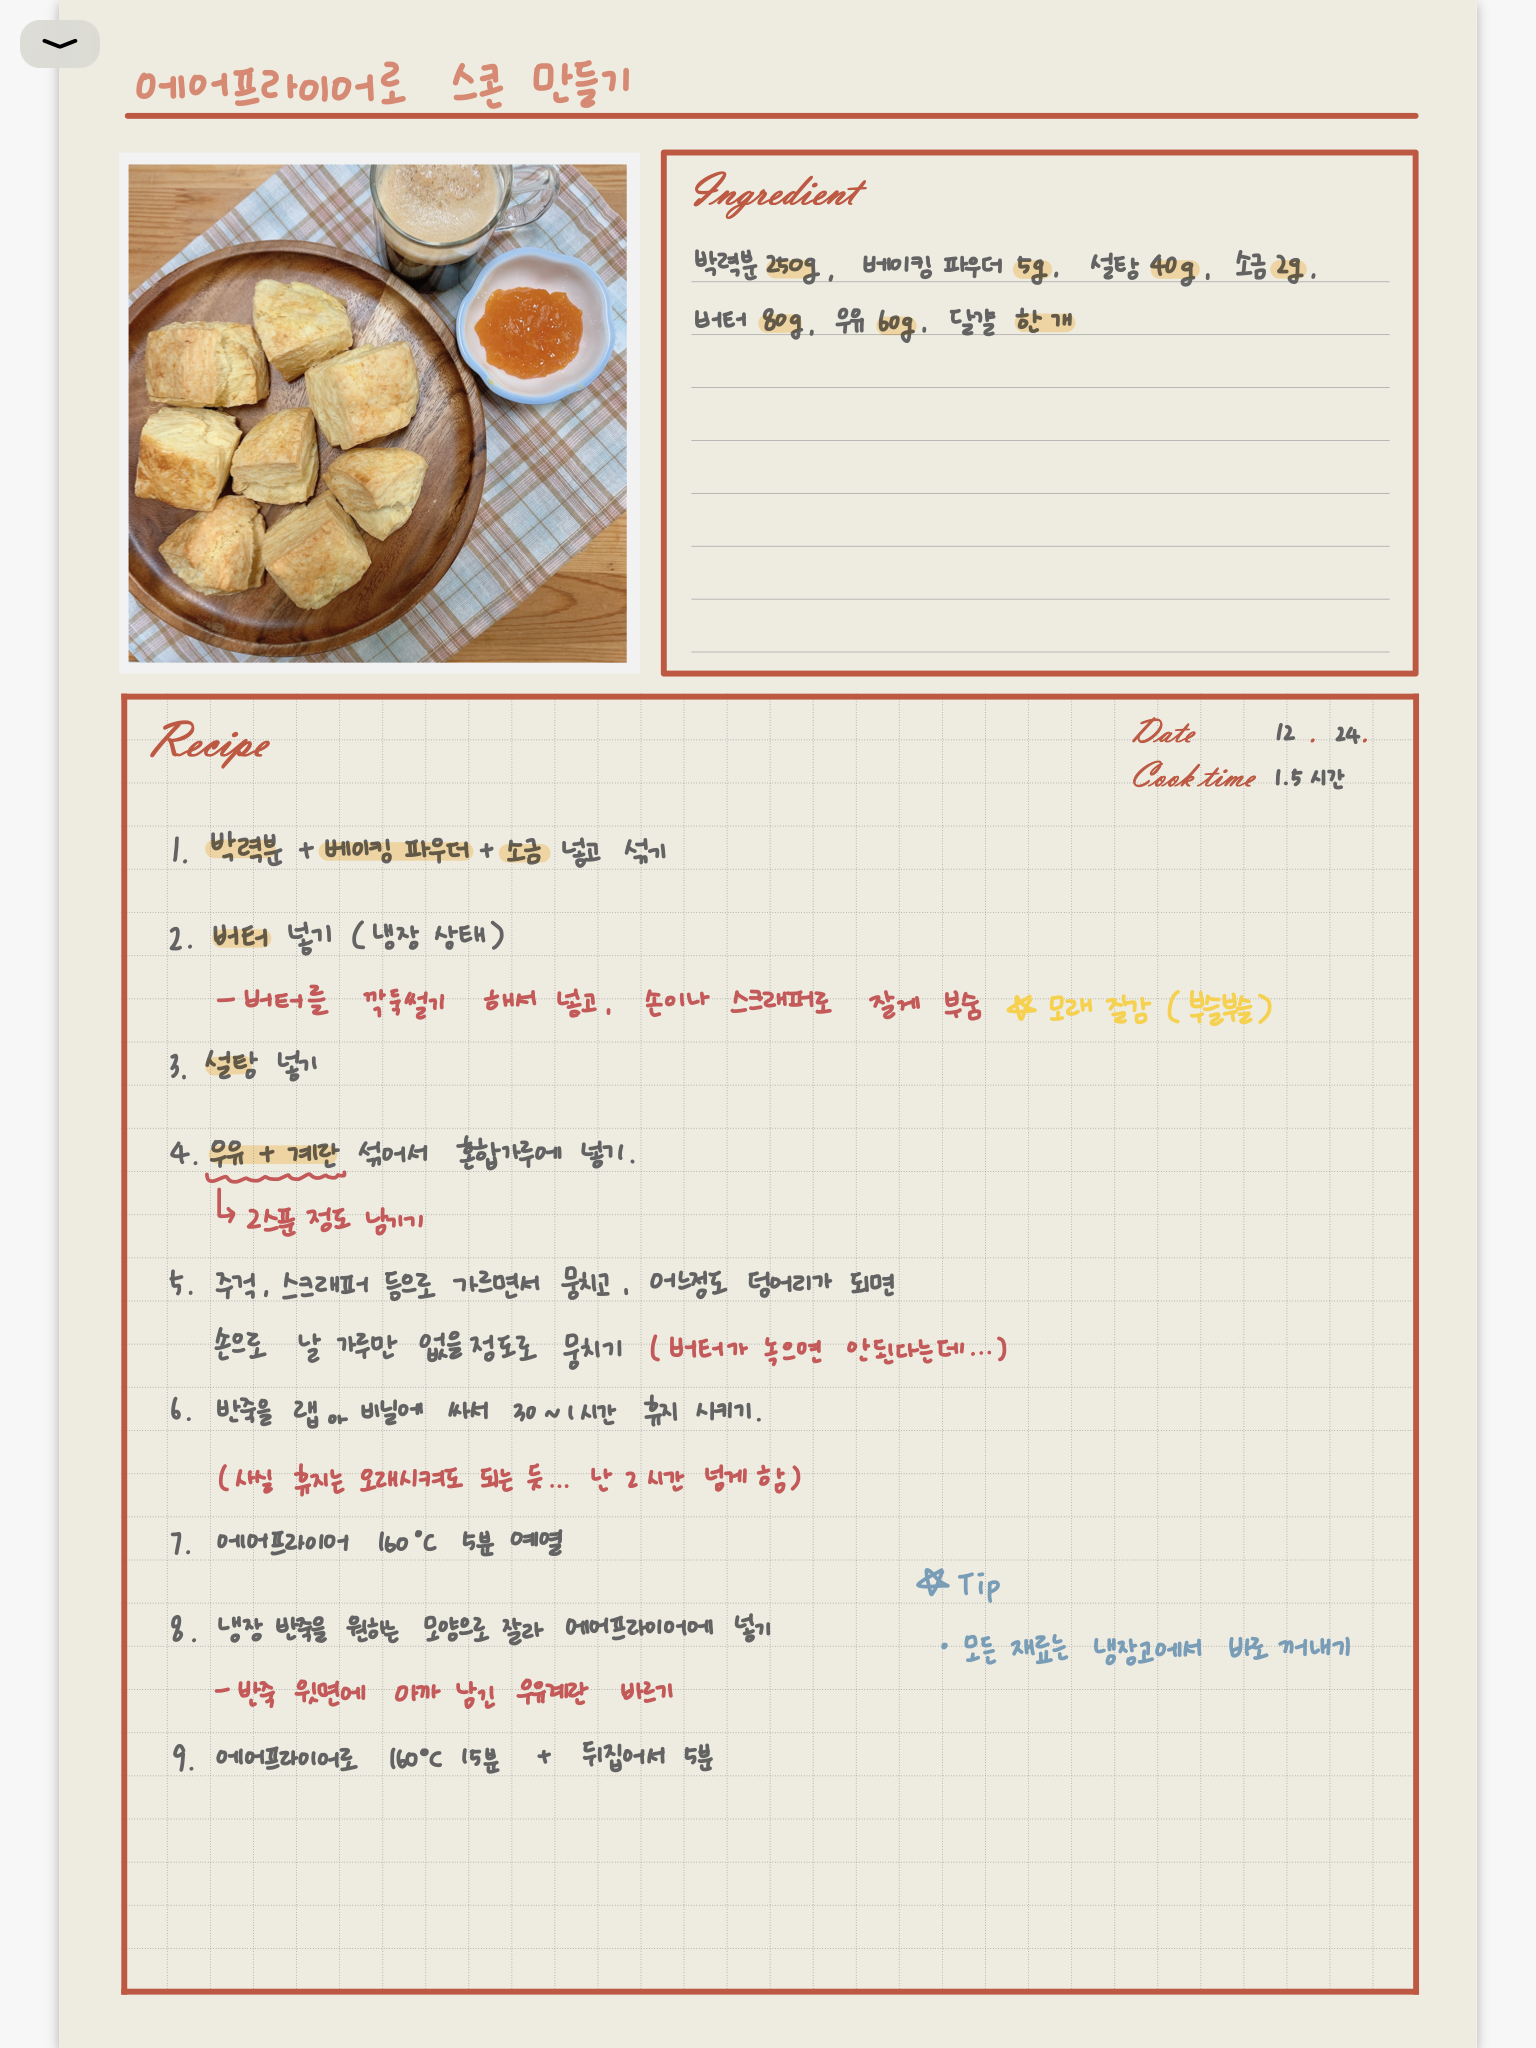 에어프라이어로 스콘 만들기
Ingredient
박력분 250g, 베이킹 파우더 5g, 설탕 40g, 소금 2g,
버터 80g, 우유 60g, 달걀 한 개
Recipe
Date 12 . 24.
Cook time 1.5 시간
1. 박력분 + 베이킹 파우더 + 소금 넣고 섞기
2. 버터 넣기 (냉장 상태)
- 버터를 깍둑썰기 해서 넣고, 손이나 스크래퍼로 잘게 부숨 ☆ 모래 질감 (부슬부슬)
3. 설탕 넣기
4. 우유 + 계란 섞어서 혼합가루에 넣기.
↳ 2스푼 정도 남기기
5. 주걱, 스크래퍼 등으로 가르면서 뭉치고, 어느정도 덩어리가 되면
손으로 날 가루만 없을 정도로 뭉치기 (버터가 녹으면 안된다는데...)
6. 반죽을 랩 or 비닐에 싸서 30~1시간 휴지 시키기.
(사실 휴지는 오래시켜도 되는 듯... 난 2시간 넘게 함)
7. 에어프라이어 160°C 5분 예열
☆ Tip
8. 냉장 반죽을 원하는 모양으로 잘라 에어프라이어에 넣기
• 모든 재료는 냉장고에서 바로 꺼내기
- 반죽 윗면에 아까 남긴 우유계란 바르기
9. 에어프라이어로 160°C 15분 + 뒤집어서 5분